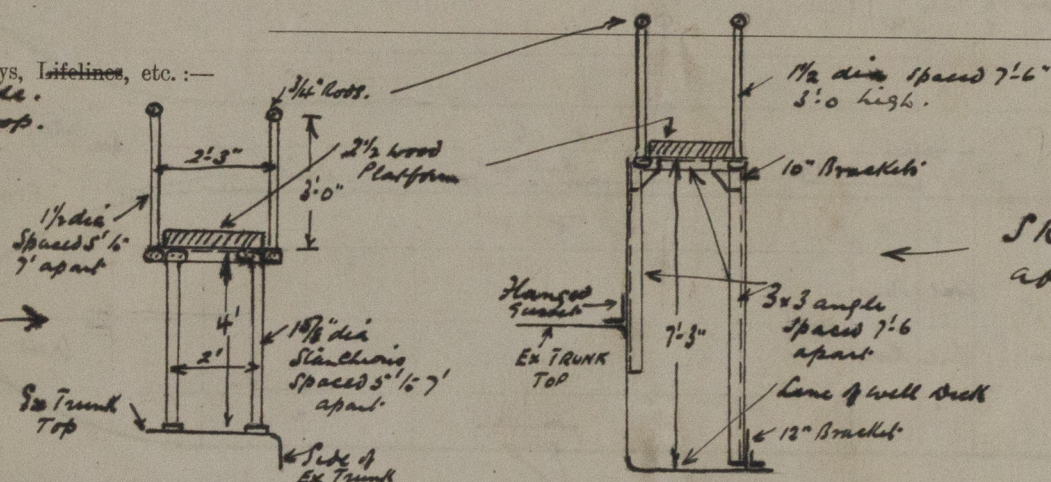 ys, Lifelines, etc. :—
op.
3/4" Rods.
2'-3"
2 1/2 wood
Platform
3'-0"
1 1/2 dia
Spaced 5' to
7' apart
4'
2'
1 5/8" dia
Stanchions
Spaced 5' to 7'
apart
Ex Trunk
Top
Side of
Ex Trunk
1 1/2 dia spaced 7'-6"
3'-0 high.
10" Brackets
Flanged
Gusset
Ex TRUNK
TOP
7'-3"
3 x 3 angle
Spaced 7'-6
apart
Line of well Deck
12" Bracket